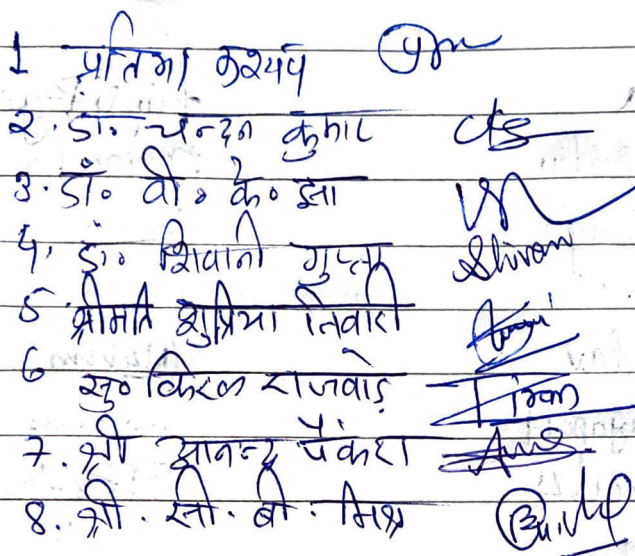 1 प्रतिमा कश्यप
2. डॉ. चन्दन कुमार
3. डॉ० वी० के० झा
4. डॉ० शिवानी गुप्ता Shivani
5 श्रीमति सुप्रिया तिवारी
6 सु० किरण राजवाड़े Kiran
7. श्री आनन्द पैंकरा
8. श्री. सी. बी. मिश्र